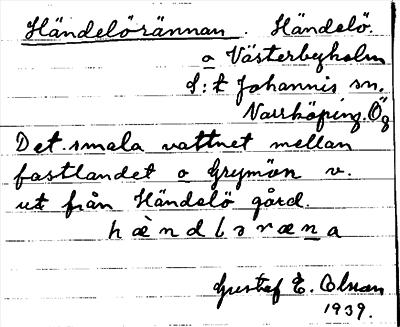 Händelörännan. Händelö.
o Västerbyholm
S:t Johannis sn.
Norrköping. Ög
Det smala vattnet mellan
fastlandet o Grymön v.
ut från Händelö gård.
hæ̀ndlɔræna
Gustaf E. Olsson
1939.